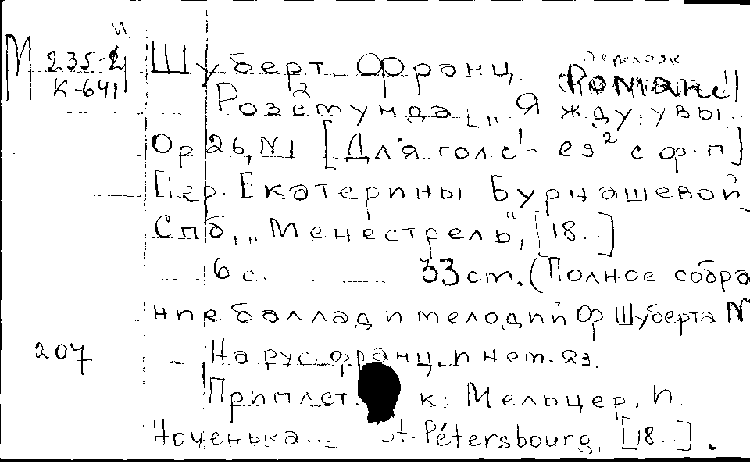 М 235-2
К-641
Шуберт Франц.
Розамунда „Я жду, увы..
Ор 26, N1 [Для голс с¹- es² с ф-п]
Пер. Екатерины Бурнашевой
Спб, „Менестрель“, [18..]
6 с. 33 cm. (Полное собра
ние баллад и мелодий Фр Шуберта N
207
На рус франц. и нем. яз.
Приплет. к: Мельцер, И.
Ноченька... St. Pétersbourg, [18..].